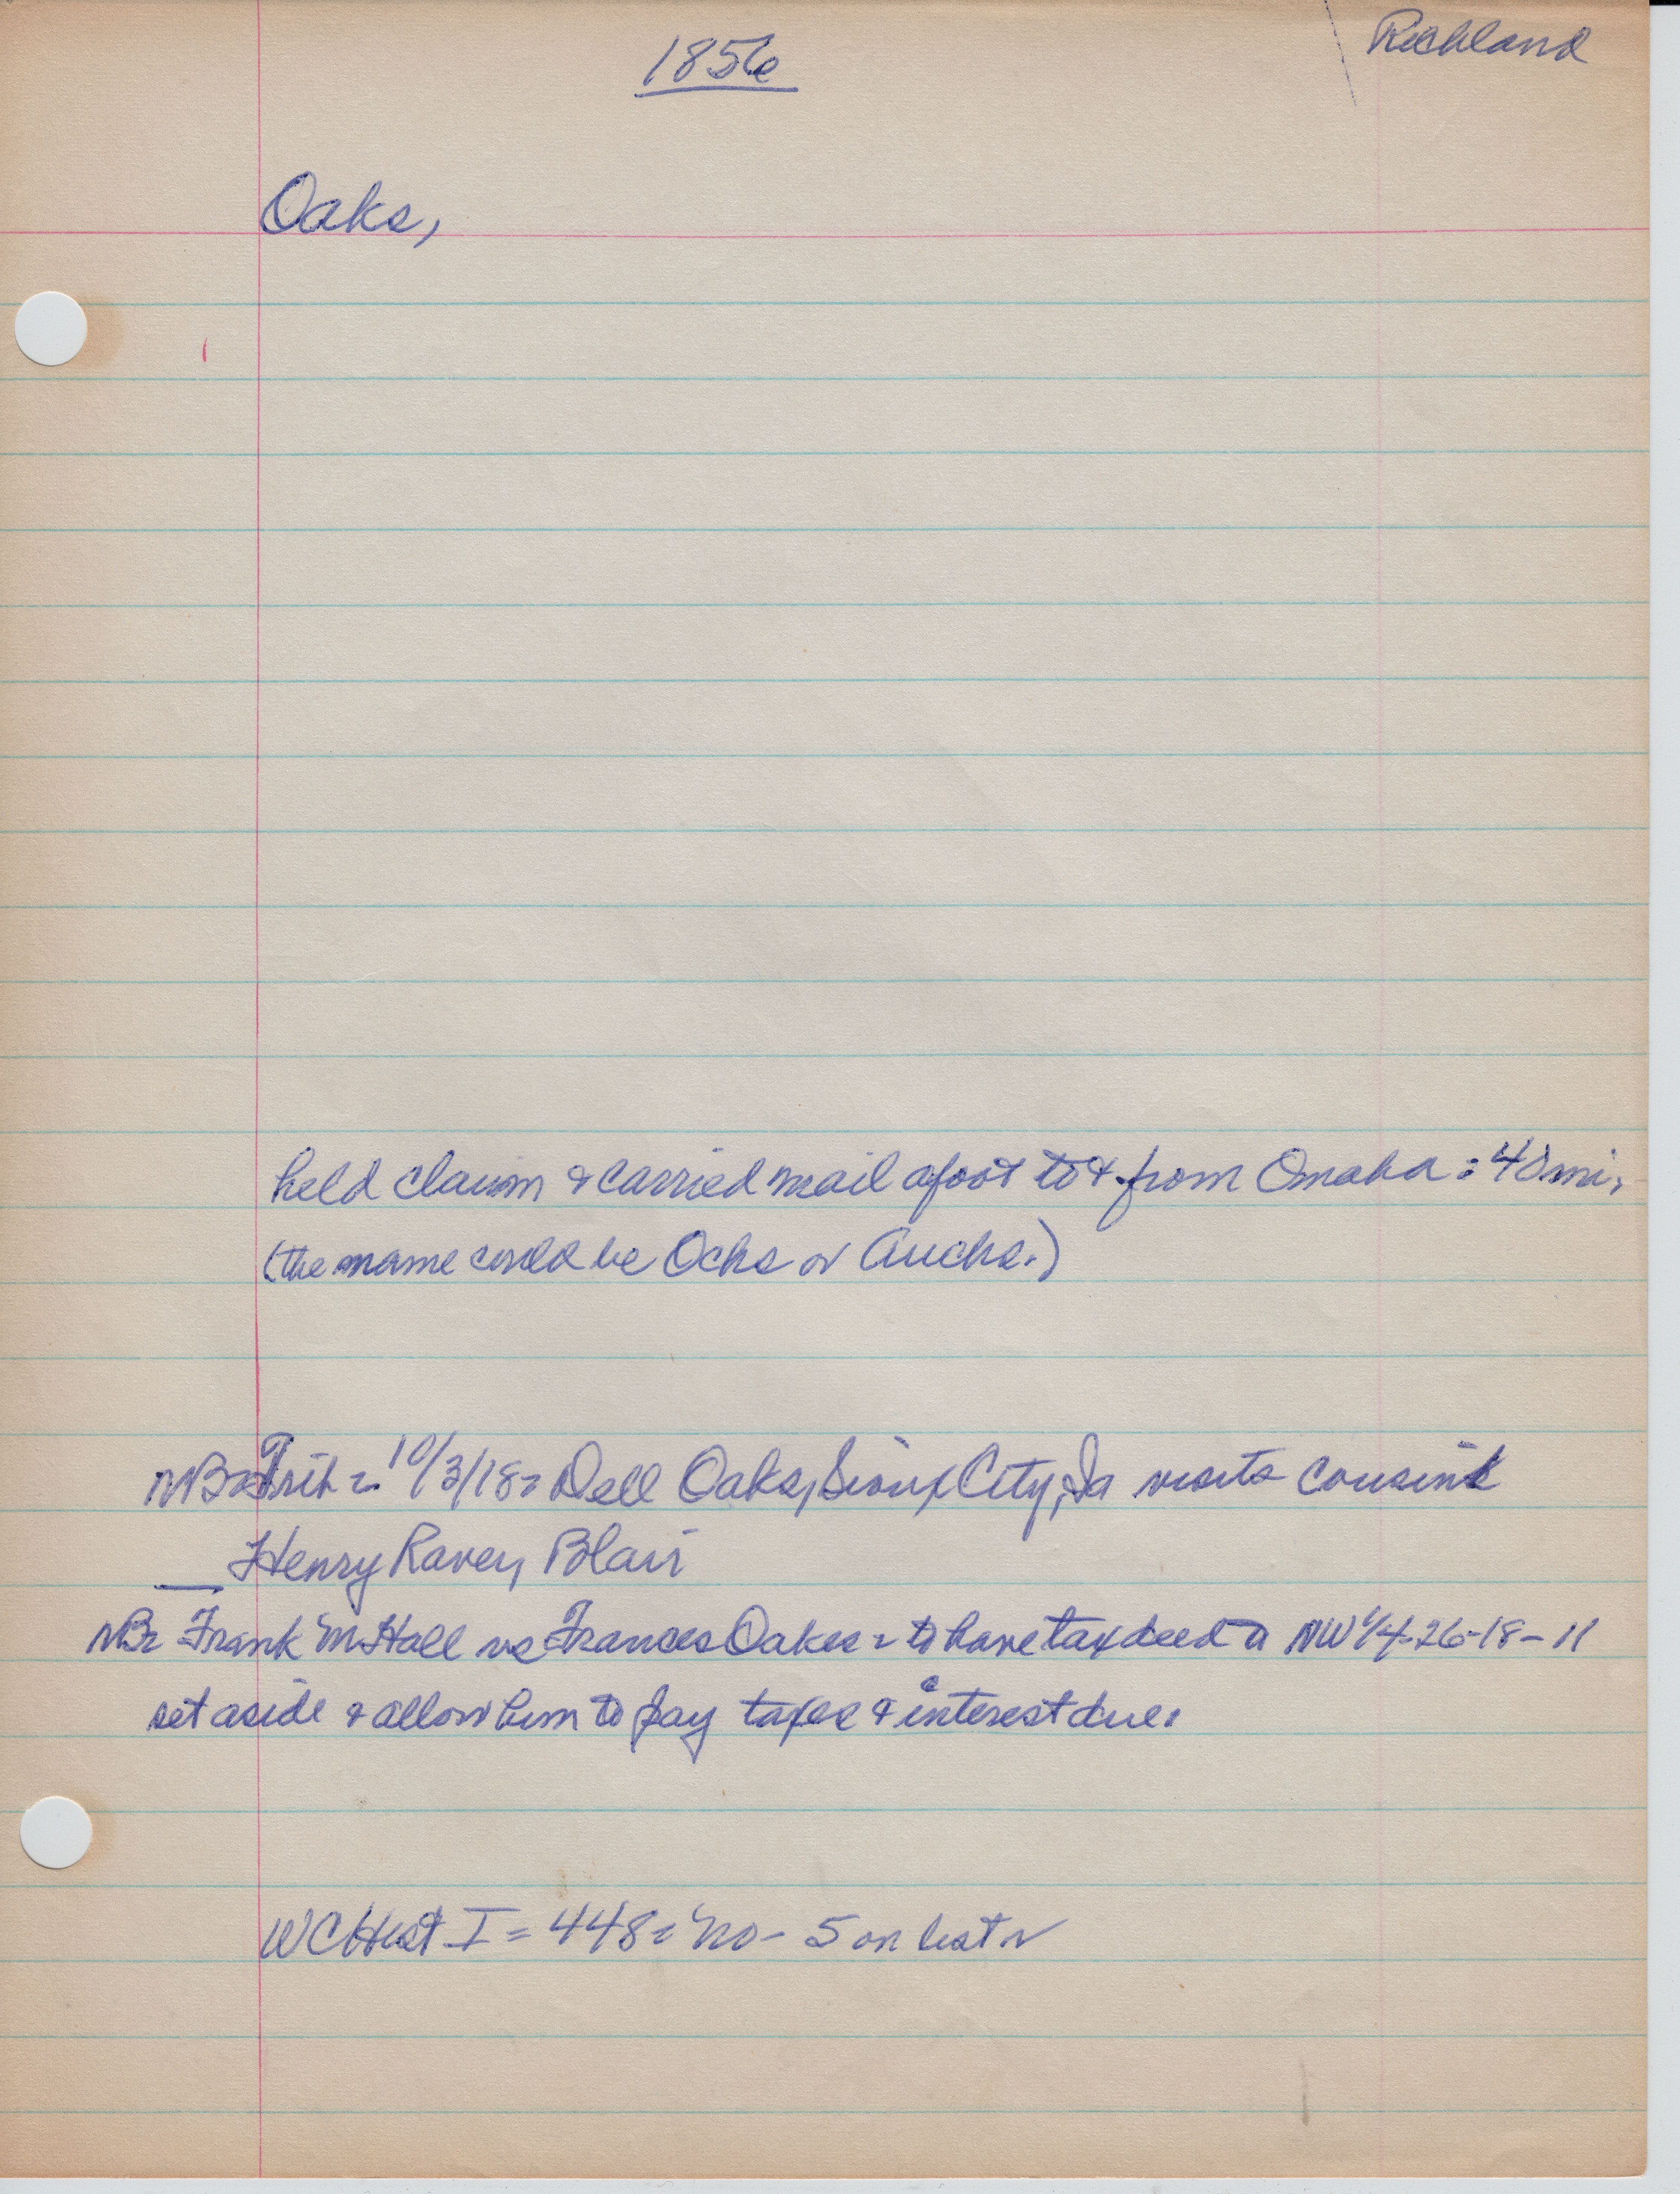 1856
Richland
Oaks,
held claim & carried mail afoot to & from Omaha = 40 mi.
(the name could be Ochs or Auchs.)
Trib = 10/3/18 = Dell Oaks, Sioux City, Ia visits cousin
Henry Raver, Blair
Frank M Hall vs Frances Oakes = to have tax deed NW 1/4-26-18-11
set aside & allow him to pay taxes & interest due.
WC Hist I = 448 = no - 5 on list